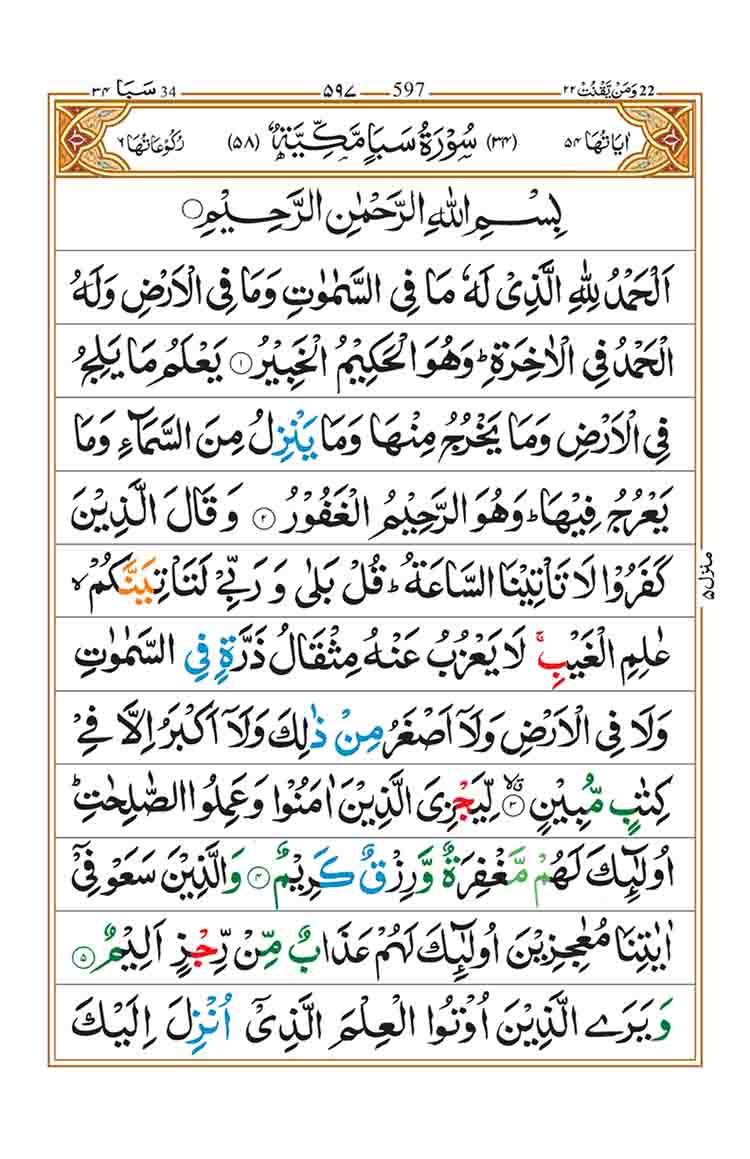 22 وَمَنْ يَّقْنُتْ ٢٢ 597 ٥٩٧ 34 سَبَا ٣٤
اٰيَاتُهَا ٥٤ (٣٤) سُوْرَةُ سَبَاٍ مَّكِّيَّةٌ (٥٨) رُكُوْعَاتُهَا ٦
بِسْمِ اللّٰهِ الرَّحْمٰنِ الرَّحِيْمِ
اَلْحَمْدُ لِلّٰهِ الَّذِىْ لَهٗ مَا فِى السَّمٰوٰتِ وَمَا فِى الْاَرْضِ وَلَهُ
الْحَمْدُ فِى الْاٰخِرَةِ ؕ وَهُوَ الْحَكِيْمُ الْخَبِيْرُ ۝١ يَعْلَمُ مَا يَلِجُ
فِى الْاَرْضِ وَمَا يَخْرُجُ مِنْهَا وَمَا يَنْزِلُ مِنَ السَّمَآءِ وَمَا
يَعْرُجُ فِيْهَا ؕ وَهُوَ الرَّحِيْمُ الْغَفُوْرُ ۝٢ وَقَالَ الَّذِيْنَ
كَفَرُوْا لَا تَاْتِيْنَا السَّاعَةُ ؕ قُلْ بَلٰى وَرَبِّىْ لَتَاْتِيَنَّكُمْ ۙ
عٰلِمِ الْغَيْبِ ۚ لَا يَعْزُبُ عَنْهُ مِثْقَالُ ذَرَّةٍ فِى السَّمٰوٰتِ
وَلَا فِى الْاَرْضِ وَلَاۤ اَصْغَرُ مِنْ ذٰلِكَ وَلَاۤ اَكْبَرُ اِلَّا فِىْ
كِتٰبٍ مُّبِيْنٍ ۝٣ لِّيَجْزِىَ الَّذِيْنَ اٰمَنُوْا وَعَمِلُوا الصّٰلِحٰتِ ؕ
اُولٰٓئِكَ لَهُمْ مَّغْفِرَةٌ وَّرِزْقٌ كَرِيْمٌ ۝٤ وَالَّذِيْنَ سَعَوْ فِىْۤ
اٰيٰتِنَا مُعٰجِزِيْنَ اُولٰٓئِكَ لَهُمْ عَذَابٌ مِّنْ رِّجْزٍ اَلِيْمٌ ۝٥
وَيَرَى الَّذِيْنَ اُوْتُوا الْعِلْمَ الَّذِىْۤ اُنْزِلَ اِلَيْكَ
منزل ٥